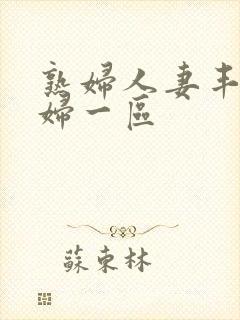 熟婦人妻丰
婦一區
蘇東林